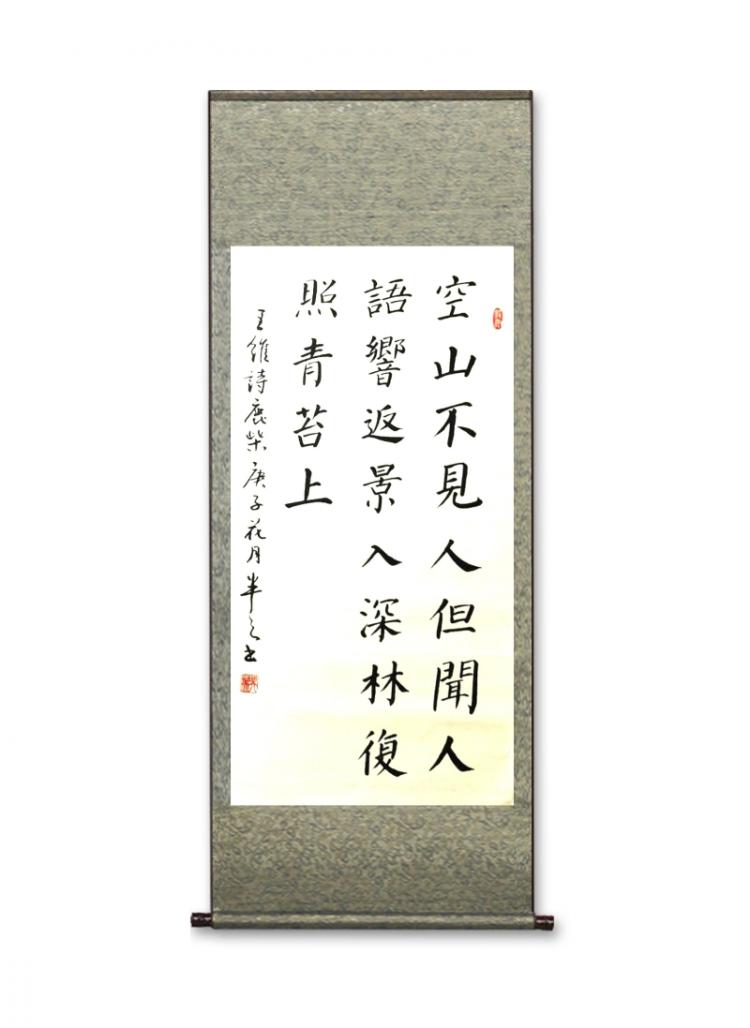 空山不見人但聞人
語響返景入深林復
照青苔上
王維詩鹿柴庚子花月半之书